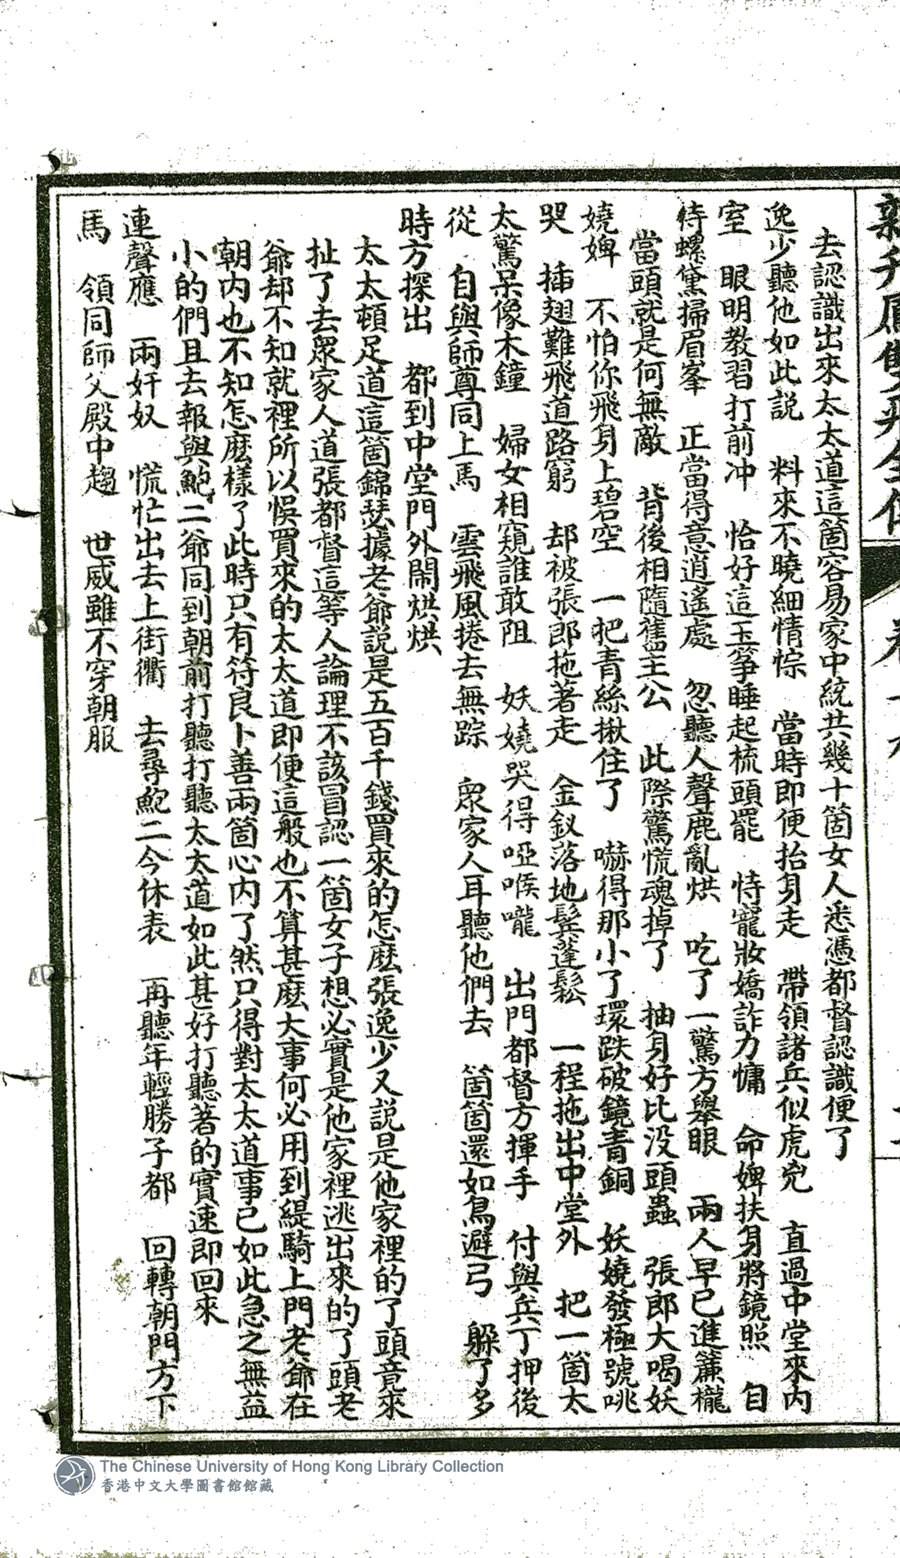 去認識出來太太道這箇容易家中統共幾十箇女人悉憑都督認識便了
逸少聽他如此説　料來不曉細情悰　當時即便抬身走　帶領諸兵似虎兕　直過中堂來内
室　眼明教習打前冲　恰好這玉筝睡起梳頭罷　恃寵妝嬌詐力慵　命婢扶身將鏡照　自
待螺黛掃眉峯　正當得意逍遙處　忽聽人聲鹿亂烘　吃了一驚方舉眼　兩人早已進簾櫳
當頭就是何無敵　背後相隨舊主公　此際驚慌魂掉了　抽身好比没頭蟲　張郎大喝妖
嬈婢　不怕你飛身上碧空　一把青絲揪住了　嚇得那小了環跌破鏡青銅　妖嬈發極號咷
哭　插翅難飛道路窮　却被張郎拖著走　金釵落地鬓蓬鬆　一程拖出中堂外　把一箇太
太驚呆像木鐘　婦女相窺誰敢阻　妖嬈哭得啞喉嚨　出門都督方揮手　付與兵丁押後
從　自與師尊同上馬　雲飛風捲去無踪　衆家人耳聽他們去　箇箇還如鳥避弓　躲了多
時方探出　都到中堂門外閙烘烘
太太頓足道這箇錦瑟據老爺説是五百千錢買來的怎麽張逸少又説是他家裡的了頭竟來
扯了去衆家人道張都督這等人論理不該冒認一箇女子想必實是他家裡逃出來的了頭老
爺却不知就裡所以悮買來的太太道即便這般也不算甚麽大事何必用到緹騎上門老爺在
朝内也不知怎麽樣了此時只有符良卜善兩箇心内了然只得對太太道事已如此急之無益
小的們且去報與鮑二爺同到朝前打聽打聽太太道如此甚好打聽著的實速即回來
連聲應　兩奸奴　慌忙出去上街衢　去尋鮑二今休表　再聽年輕勝子都　回轉朝門方下
馬　領同師父殿中趨　世威雖不穿朝服
The Chinese University of Hong Kong Library Collection
香港中文大學圖書館館藏